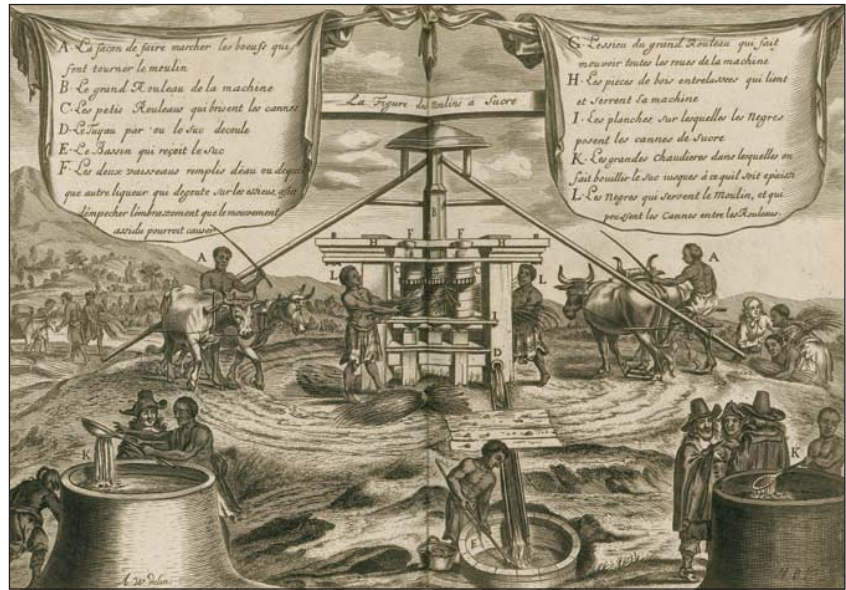 A. La façon de faire marcher les boeufs qui
font tourner le moulin
B. Le grand Rouleau de la machine
C. Les petis Rouleaus qui brisent les cannes
D. Le Tuyau par ou le suc decoule
E. Le Bassin qui reçoit le suc
F. Les deux vaisseaus remplis d'eau ou de
que autre liqueur qui degoute sur les essieus, afin
d'empecher l'embrasement que le mouvement
assidu pourroit causer
La Figure des Moulins à Sucre
G. L'essieu du grand Rouleau qui fait
mouvoir toutes les roues de la machine
H. Les pieces de bois entrelassees qui lient
et serrent la machine
I. Les planches, sur lesquelles les Negres
posent les cannes de sucre
K. Les grandes chaudieres dans lesquelles on
fait bouillir le suc jusques à ce qu'il soit epaissi
L. Les Negres qui servent le Moulin, et qui
poussent les Cannes entre les Rouleaus.
A
H F F H
B
C C
L L
A
I
D
K
K
E
A. W. delin.